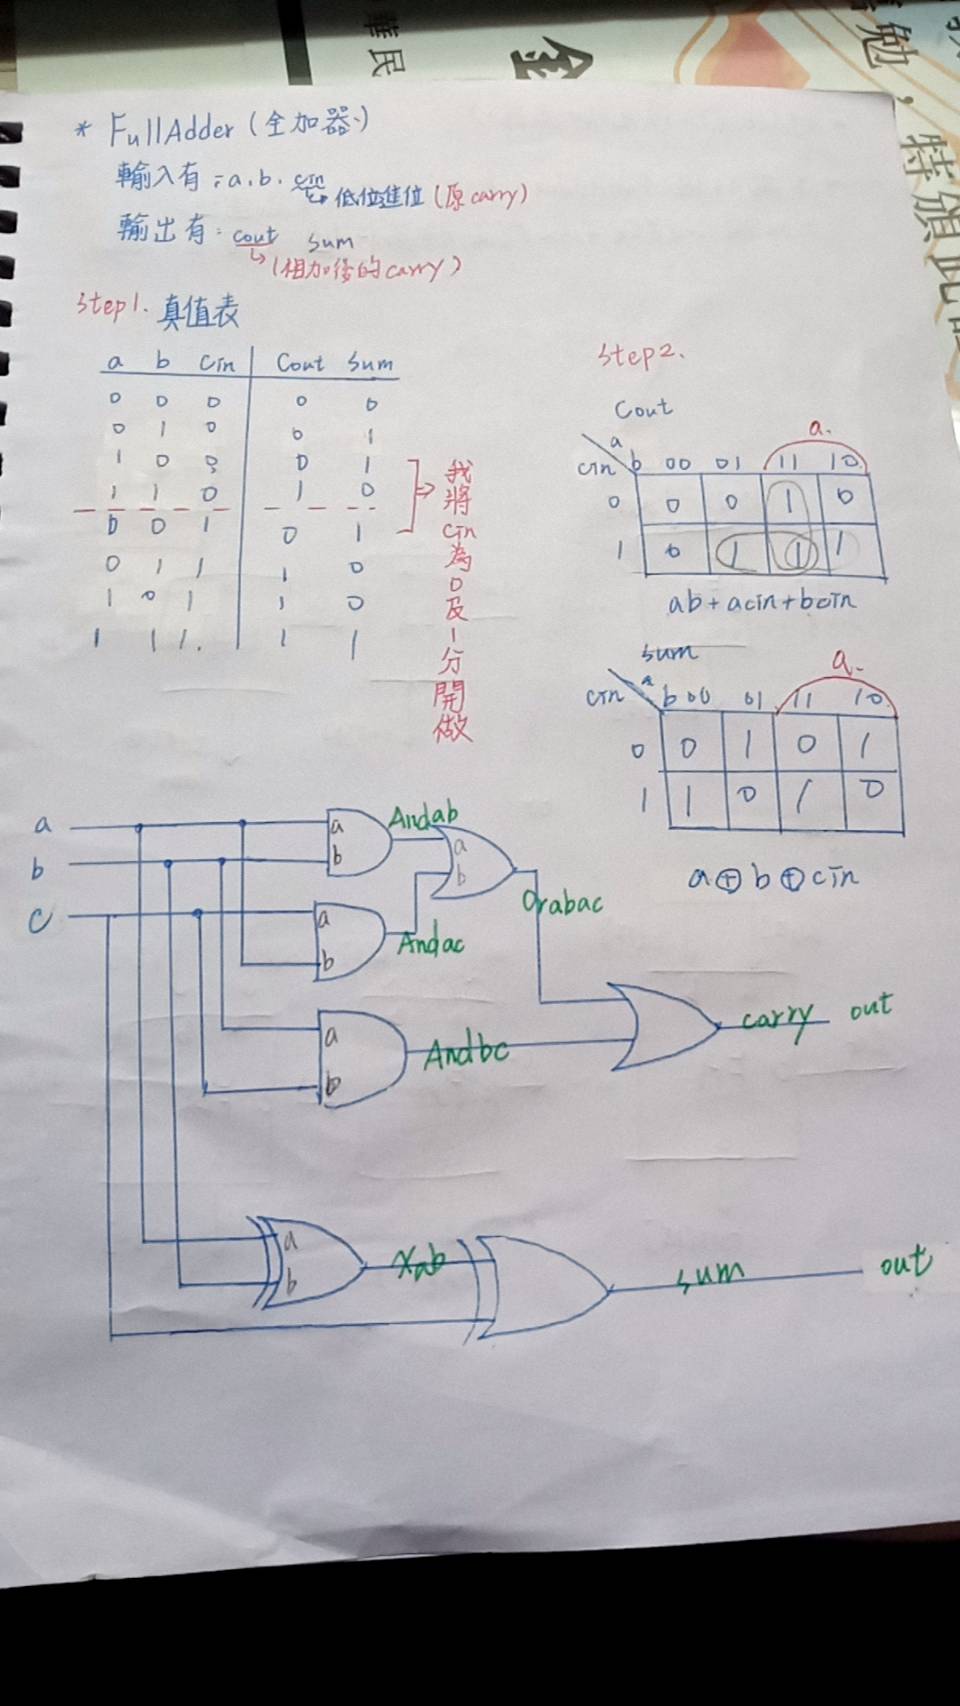 華民
金
勉，
特頒此
* FullAdder (全加器)
輸入有：a.b.cin
↳ 低位進位 (原carry)
輸出有：cout sum
↳ (相加後的carry)
Step1. 真值表
a b Cin Cout Sum
0 0 0 0 0
0 1 0 0 1
1 0 0 0 1
1 1 0 1 0
0 0 1 0 1
0 1 1 1 0
1 0 1 1 0
1 1 1. 1 1
我將cin為0及1分開做
Step2.
Cout
a.
a
cin b 00 01 11 10
0 0 0 1 0
1 0 1 1 1
ab+acin+bcin
sum
a.
cin a b 00 01 11 10
0 0 1 0 1
1 1 0 1 0
a⊕b⊕cin
a
b
C
a
b
Andab
a
b
Orabac
a
b
Andac
a
b
Andbc
carry out
a
b
Xab
sum out